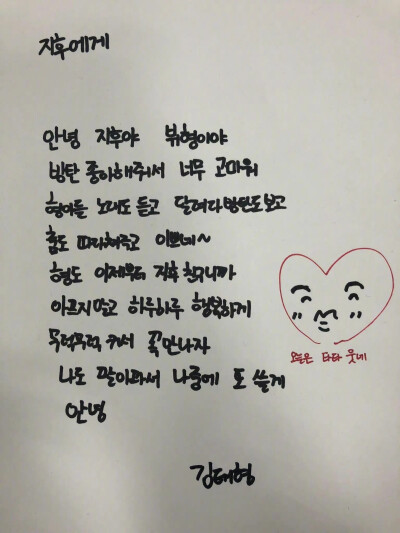 지후에게
안녕 지후야 뷔형이야
방탄 좋아해줘서 너무 고마워
형아들 노래도 듣고 달려라방탄도보고
춤도 따라해주고 이쁘네~
형도 이제부터 지후 친구니까
아프지말고 하루하루 행복하게
무럭무럭 커서 꼭만나자
나도 팔아파서 나중에 또 쓸게
안녕
오늘은 타타 웃네
김태형